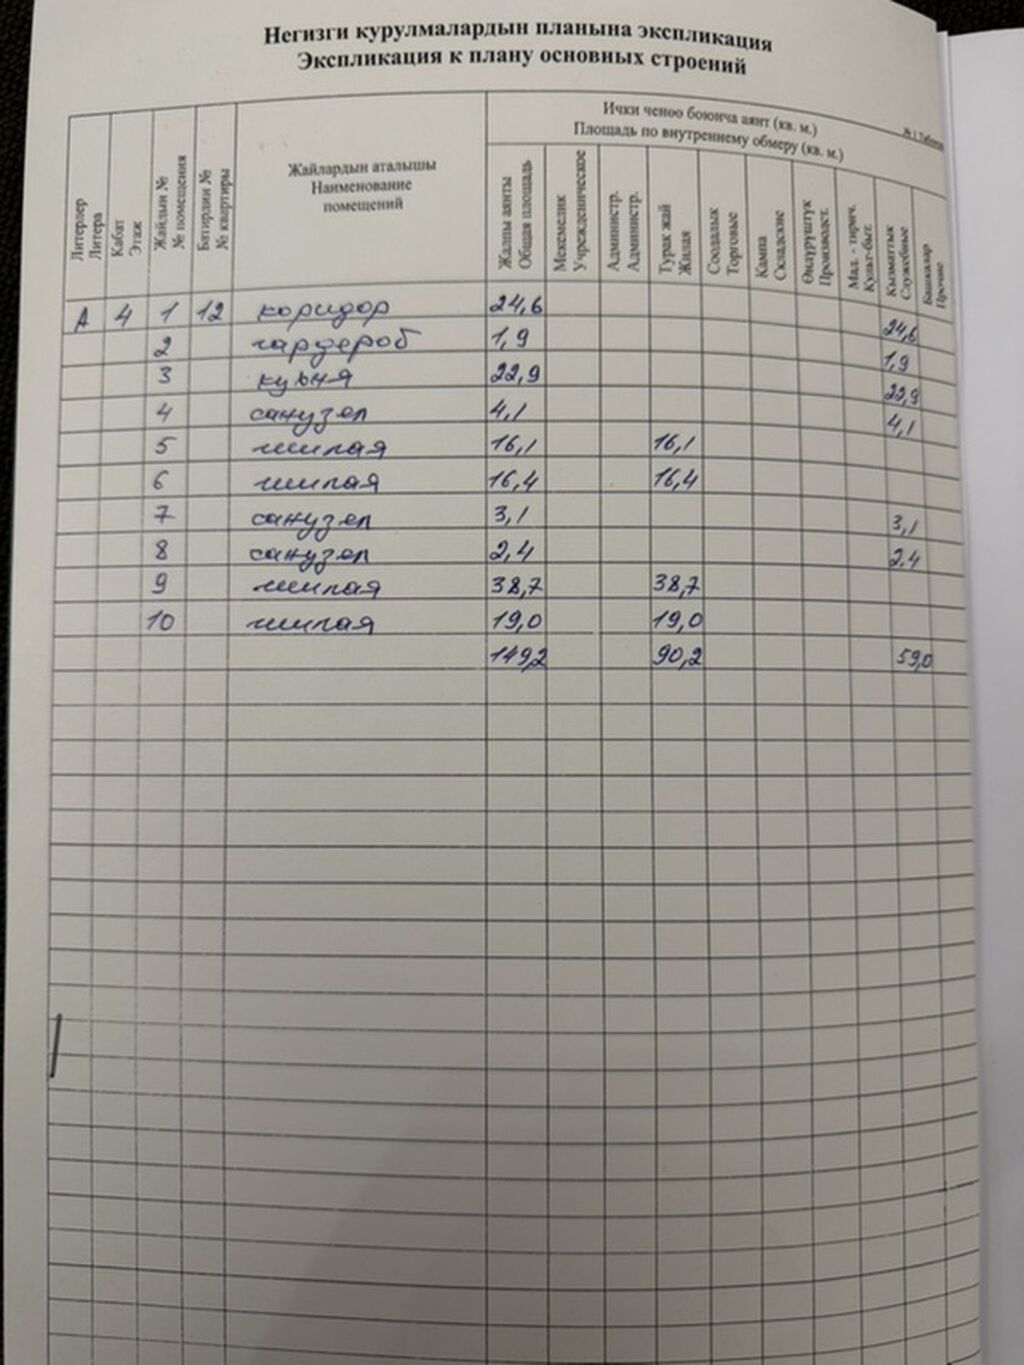 Негизги курулмалардын планына экспликация
Экспликация к плану основных строений
№ 1 Таблица
Литерлер
Литера
Кабат
Этаж
Жайдын №
№ помещения
Батирдин №
№ квартиры
Жайлардын аталышы
Наименование
помещений
Ички ченөө боюнча аянт (кв. м.)
Площадь по внутреннему обмеру (кв. м.)
Жалпы аянты
Общая площадь
Мекемелик
Учрежденическое
Администр.
Администр.
Турак жай
Жилая
Соодалык
Торговые
Кампа
Складские
Өндүрүштүк
Производст.
Мад. - тирич.
Культ-быт.
Кызматтык
Служебные
Башкалар
Прочие
А 4 1 12 коридор 24,6 24,6
2 гардероб 1,9 1,9
3 кухня 22,9 22,9
4 санузел 4,1 4,1
5 жилая 16,1 16,1
6 жилая 16,4 16,4
7 санузел 3,1 3,1
8 санузел 2,4 2,4
9 жилая 38,7 38,7
10 жилая 19,0 19,0
149,2 90,2 59,0